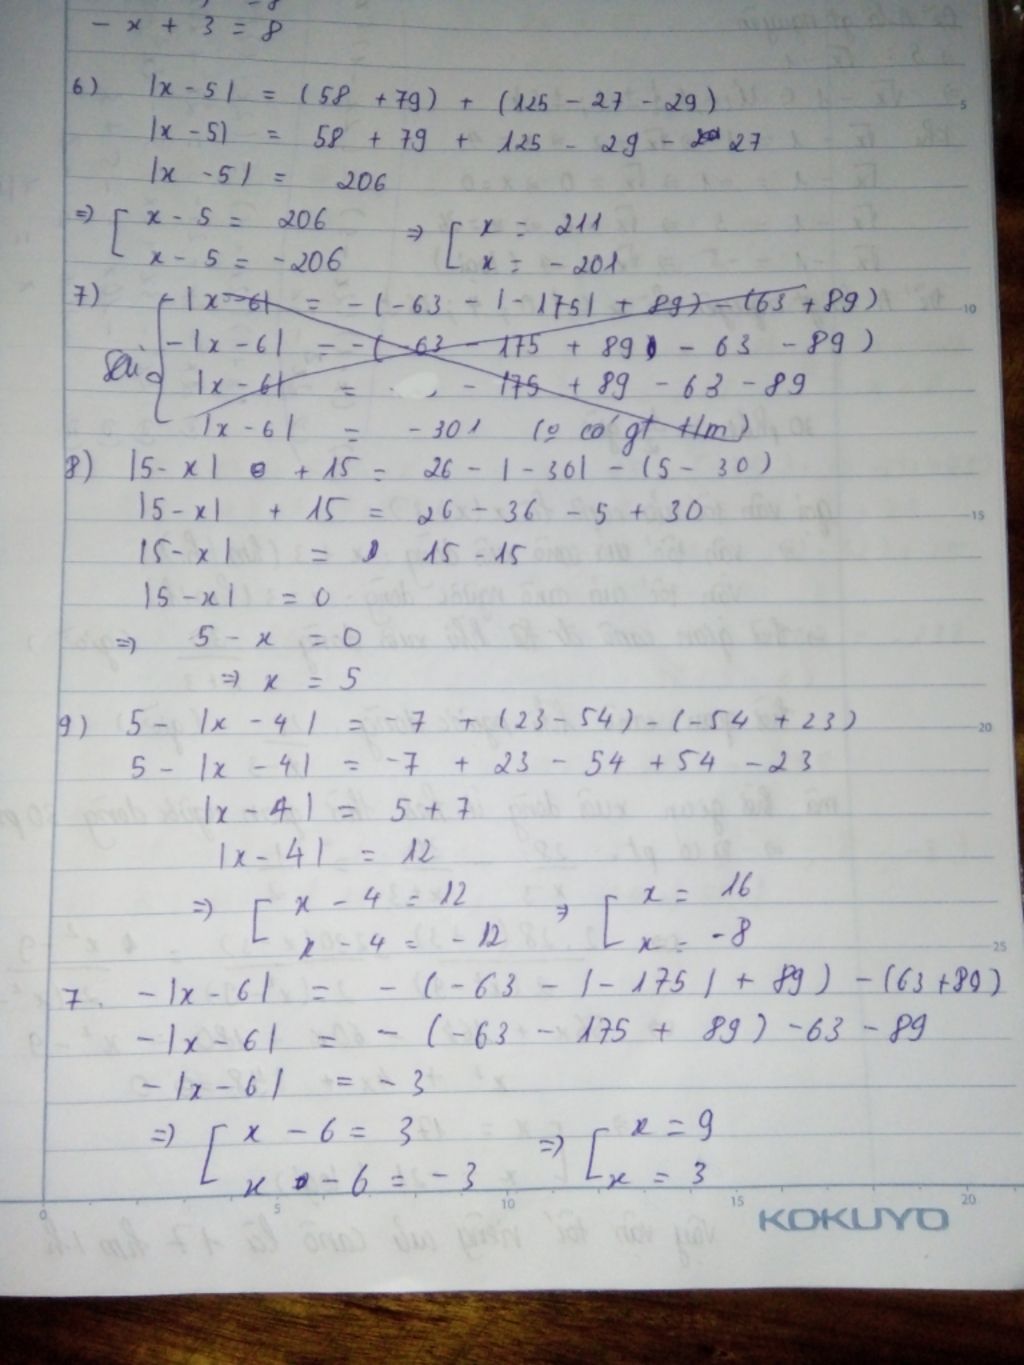 - x + 3 = 8
6) |x - 5| = (58 + 79) + (125 - 27 - 29)
|x - 5| = 58 + 79 + 125 - 29 - 27
|x - 5| = 206
=> [ x - 5 = 206 => [ x = 211
x - 5 = -206 x = - 201
7) - |x - 6| = - (-63 - |-175| + 89) - (63 + 89)
- |x - 6| = - (-63 - 175 + 89) - 63 - 89)
Sai |x - 6| = - 175 + 89 - 63 - 89
|x - 6| = - 301 (o có gt t/m)
8) |5 - x| + 15 = 26 - |-30| - (5 - 30)
|5 - x| + 15 = 26 - 36 - 5 + 30
|5 - x| = 15 - 15
|5 - x| = 0
=> 5 - x = 0
=> x = 5
9) 5 - |x - 4| = -7 + (23 - 54) - (-54 + 23)
5 - |x - 4| = -7 + 23 - 54 + 54 - 23
|x - 4| = 5 + 7
|x - 4| = 12
=> [ x - 4 = 12 => [ x = 16
x - 4 = - 12 x = -8
7. - |x - 6| = - (-63 - |-175| + 89) - (63 + 89)
- |x - 6| = - (-63 - 175 + 89) - 63 - 89
- |x - 6| = - 3
=> [ x - 6 = 3 => [ x = 9
x - 6 = - 3 x = 3
0 5 10 15 20
KOKUYO
5
10
15
20
25